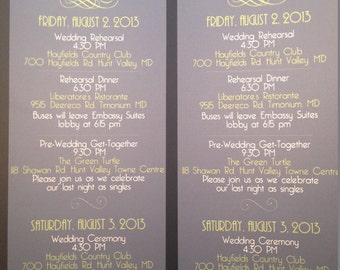 FRIDAY, AUGUST 2, 2013
Wedding Rehearsal
4:30 PM
Hayfields Country Club
700 Hayfields Rd. Hunt Valley, MD
Rehearsal Dinner
6:30 PM
Liberatore's Ristorante
9515 Deereco Rd. Timonium, MD
Buses will leave Embassy Suites
lobby at 6:15 pm
Pre-Wedding Get-Together
9:30 PM
The Green Turtle
118 Shawan Rd. Hunt Valley Towne Centre
Please join us as we celebrate
our last night as singles
SATURDAY, AUGUST 3, 2013
Wedding Ceremony
4:30 PM
Hayfields Country Club
700 Hayfields Rd. Hunt Valley, MD
FRIDAY, AUGUST 2, 2013
Wedding Rehearsal
4:30 PM
Hayfields Country Club
700 Hayfields Rd. Hunt Valley, MD
Rehearsal Dinner
6:30 PM
Liberatore's Ristorante
9515 Deereco Rd. Timonium, MD
Buses will leave Embassy Suites
lobby at 6:15 pm
Pre-Wedding Get-Together
9:30 PM
The Green Turtle
118 Shawan Rd. Hunt Valley Towne Centre
Please join us as we celebrate
our last night as singles
SATURDAY, AUGUST 3, 2013
Wedding Ceremony
4:30 PM
Hayfields Country Club
700 Hayfields Rd. Hunt Valley, MD